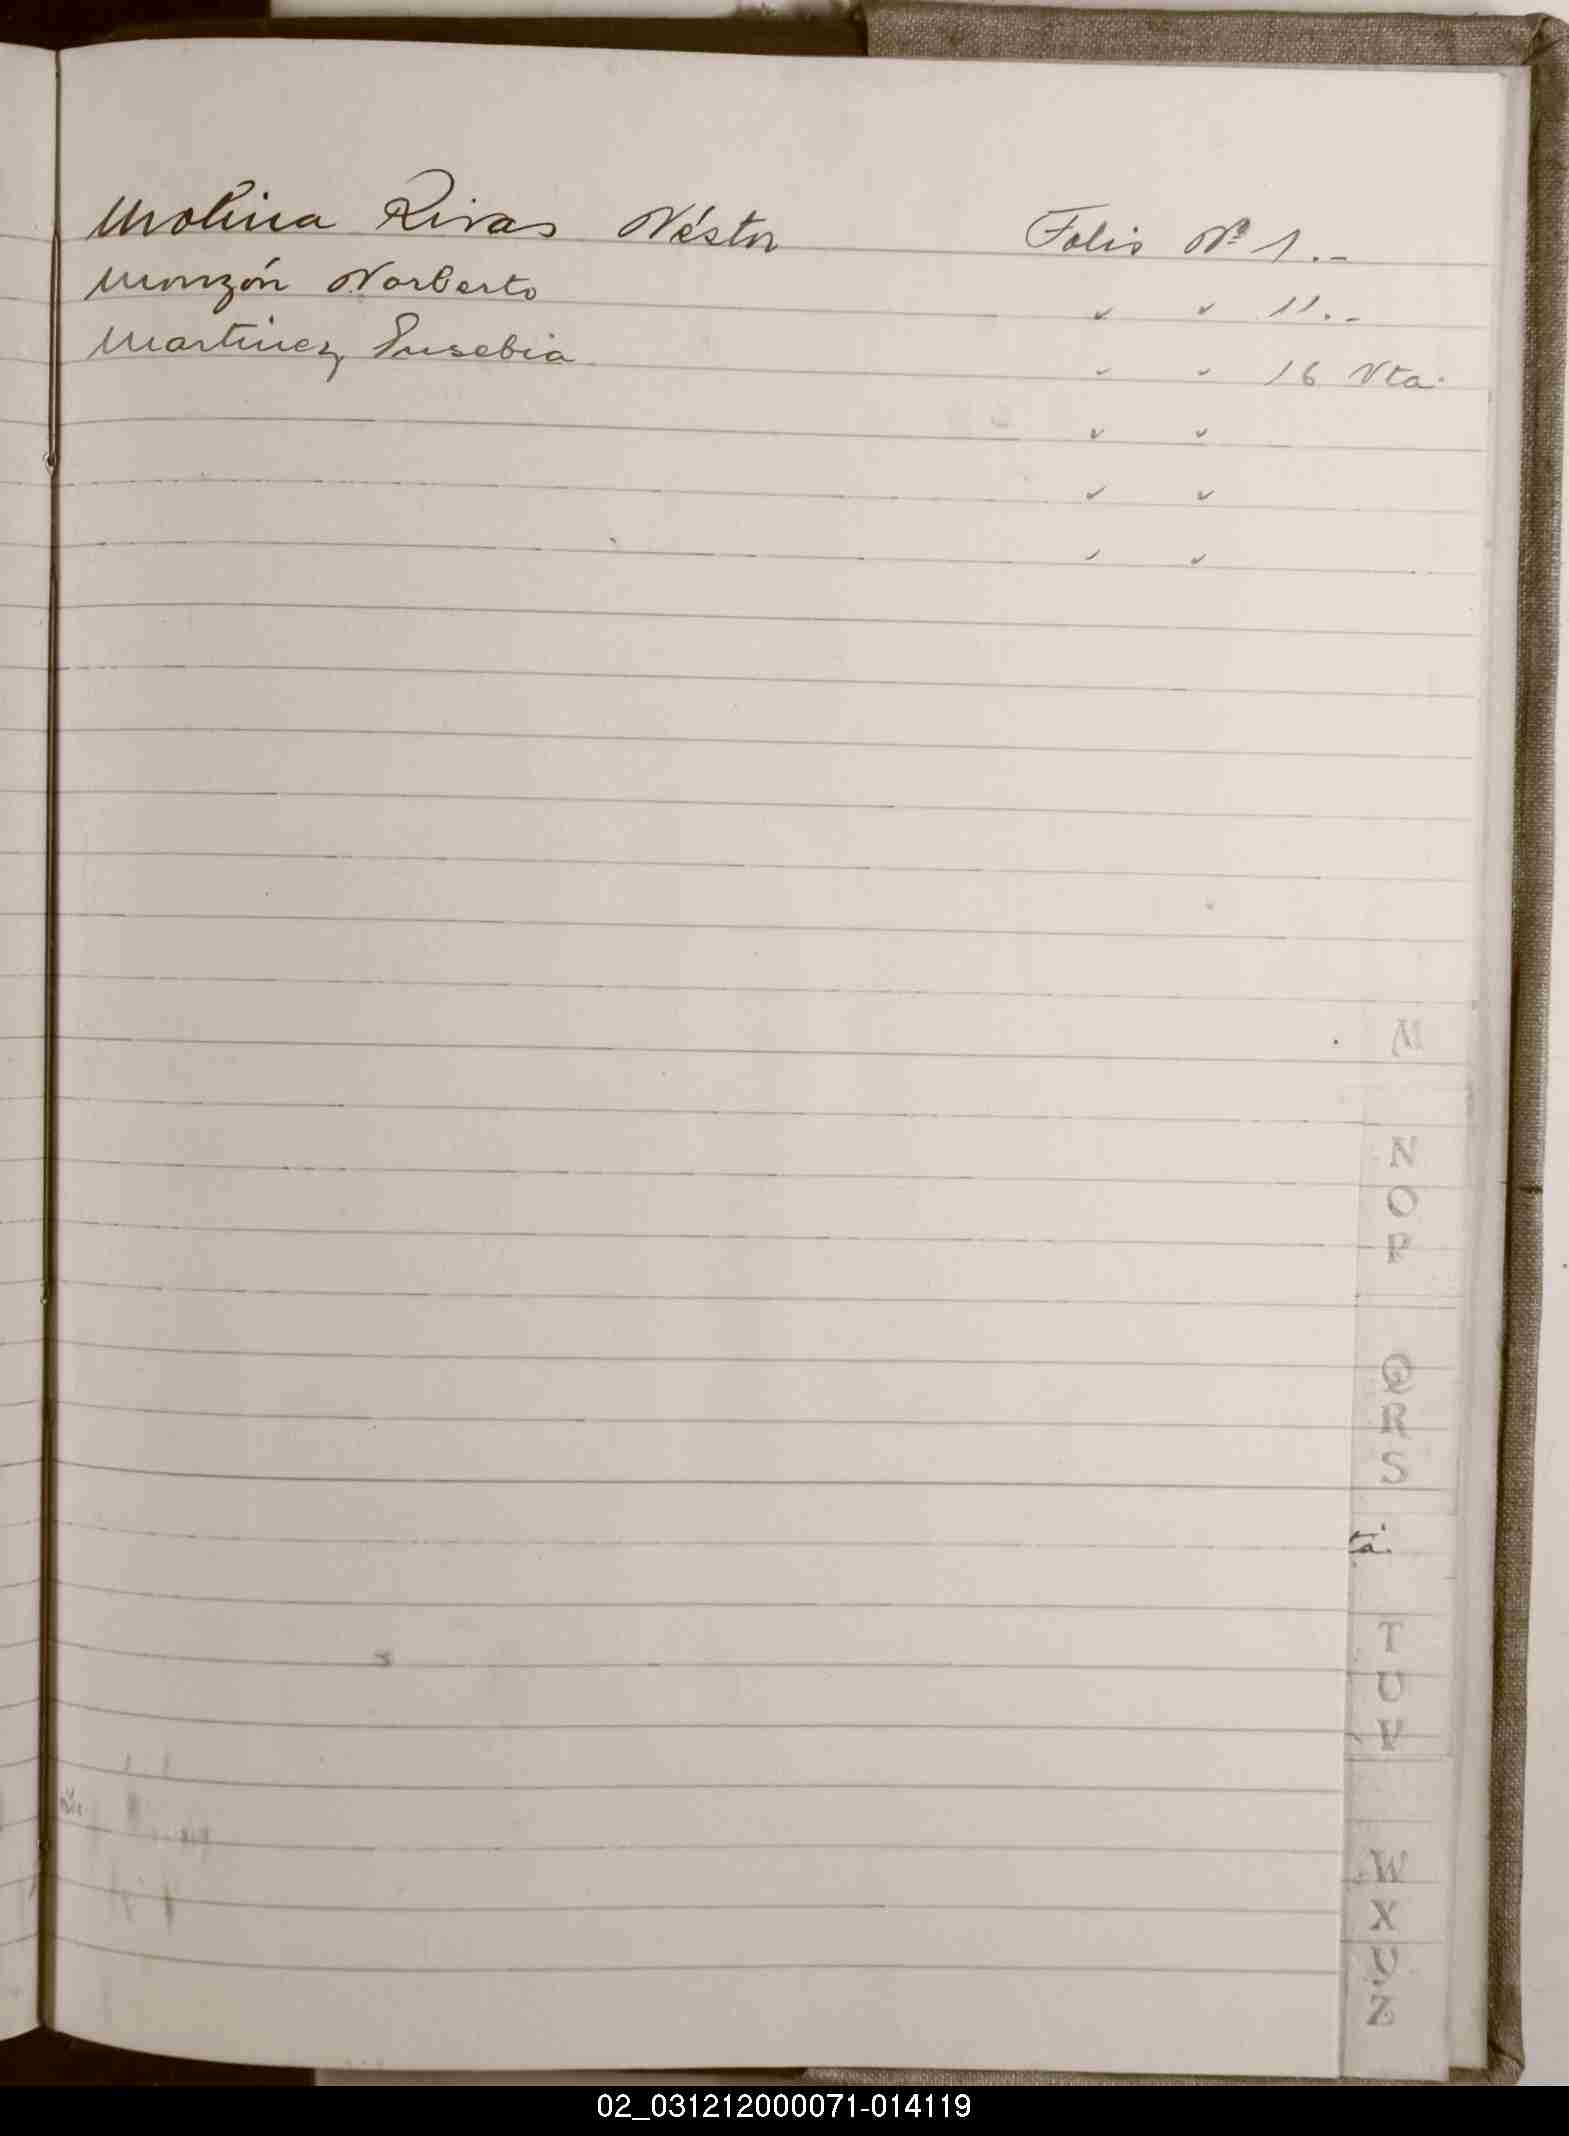 Molina Rivas Néstor Folio Nº 1.-
Monzón Norberto " " 11.-
Martinez Eusebia " " 16 Vta.
" "
" "
" "
M
N
O
P
Q
R
S
ta.
T
U
V
W
X
Y
Z
02_031212000071-014119